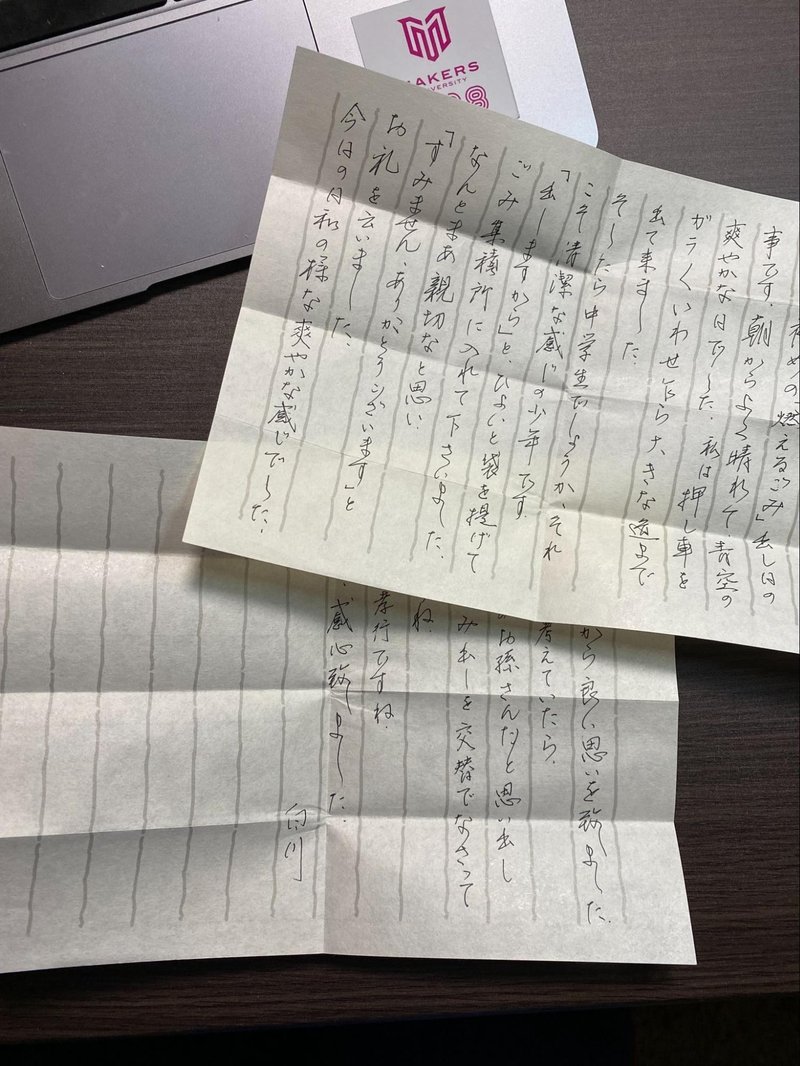 MAKERS
UNIVERSITY
夜めの「燃えるごみ」出し日の
事です。朝からよく晴れて、青空の
爽やかな日でした。私は押し車を
がらくいわせ乍ら大きな道まで
出て来ました。
そしたら中学生でしょうか、それ
こそ清潔な感じの少年です。
「出しますから」と、ひょいと袋を提げて
ごみ集積所に入れて下さいました。
なんとまあ親切なと思い
「すみません、ありがとうございます」と
お礼を云いました。
今日の日和の様な爽やかな感じでした。
から良い思いを致しました。
考えていたら、
のお孫さんだと思い出し
み出しを交替でなさって
ね。
孝行ですね。
感心致しました。
白川